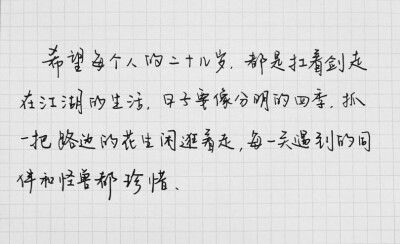 希望每个人的二十几岁，都是扛着剑走
在江湖的生活，日子要像分明的四季，抓
一把路边的花生闲逛着走，每一天遇到的同
伴和怪兽都珍惜、